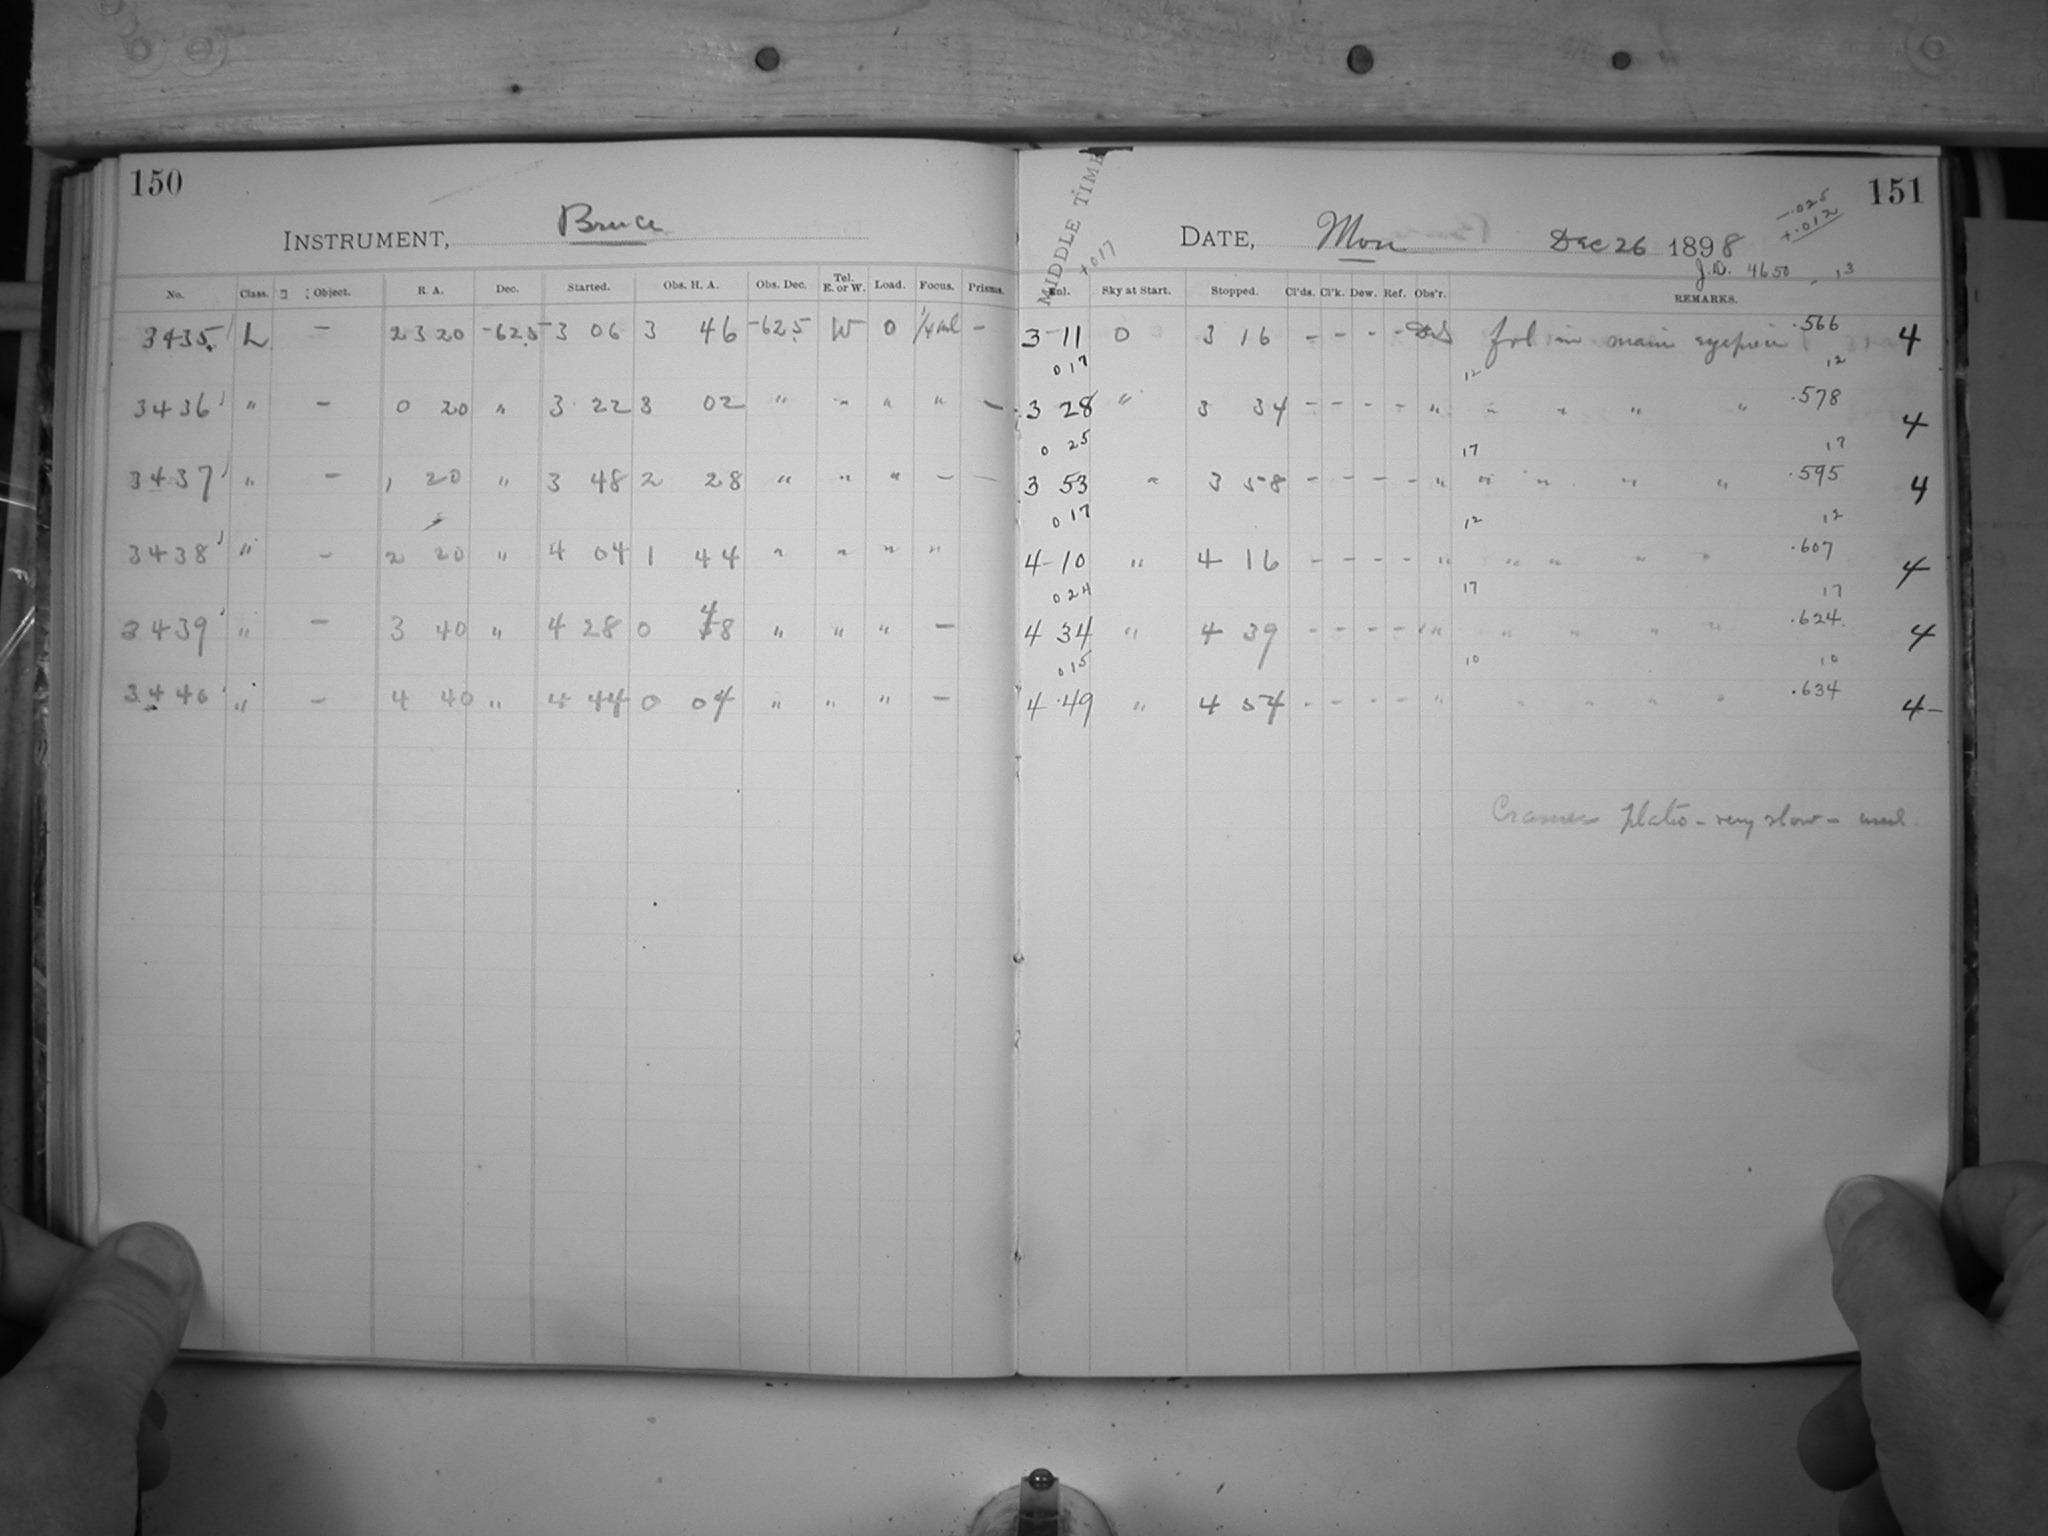 150
INSTRUMENT, Bruce
No. Class. Object. R. A. Dec. Started. Obs. H. A. Obs. Dec. Tel. E. or W. Load. Focus. Prisms.
3435 L — 23 20 -62.5 3 06 3 46 -62.5 W 0 —
3436 " — 0 20 " 3 22 3 02 " " " " —
3437 " — 1 20 " 3 48 2 28 " " " — —
3438 " — 2 20 " 4 04 1 44 " " " "
3439 " — 3 40 " 4 28 0 48 " " " —
3440 " — 4 40 " 4 44 0 04 " " " —
151
MIDDLE TIME
+017
-.025
+.012
DATE, Mon Dec 26 1898
J.D. 4650 ,13
Enl. Sky at Start. Stopped. Cl'ds. Cl'k. Dew. Ref. Obs'r. REMARKS.
3 11 0 3 16 - - - - fol in main eyepiece .566 4
0 17 12 12
3 28 " 3 34 - - - - " " " " " .578 4
0 25 17 17
3 53 " 3 58 - - - - " " " " " .595 4
0 17 12 12
4 10 " 4 16 - - - - " " " " " .607 4
0 24 17 17
4 34 " 4 39 - - - - " " " " " .624 4
0 15 10 10
4 49 " 4 54 - - - - " " " " " .634 4-
Cramer plates - very slow - used.